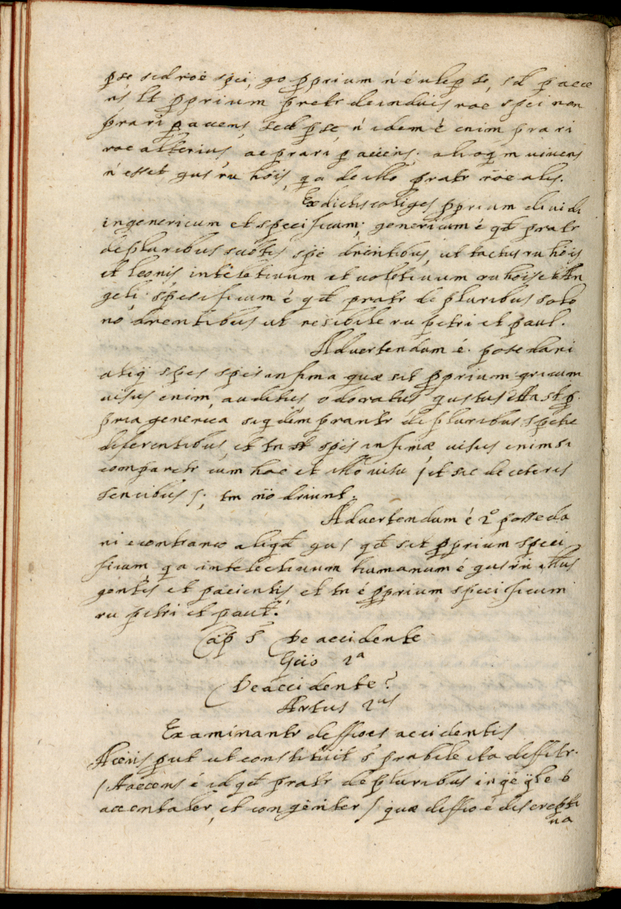 pse sed roē spēi, go pprium n̄ ē ulep se, sd p acce
ns lt pprium pretr de induis roe spēi non
prari p accens sed p se, n̄ idem ē enim prari
roe alterius, ac prari p accens. alioqin uiuens
n̄ esset gus ru hōis, q a de illo pratr rōe alis.
Ex dictis coliges pprium diuidi
in genericum et specificum; genericum ē qd pratr
de pluribus subtis spē drentibus, ut tactus ru hōis
et leonis intelectiuum et uolitiuum ru hōis et An
geli: specificum ē qd pratr de pluribus solo
no drentibus ut risibile ru petri et paul.
Aduertendum ē posse dari
aliq spēs speis infima quæ sit pprium gricum
uisus enim, auditus odoratus gustus illa st p
pria generica siqdem prantr de pluribus spetie
diferentibus, et tn st spēs infimæ uisus enim si
comparetr cum hoc et illo uisu / et sic de ceteris
sencibus /; tm n̄o driunt.
Aduertendum ē 2º posse da
ri e contrario aliqd gus qd sit pprium speci
ficum q a intelectiuum humanum ē gus ru illius
gentis et pacientis et tn ē pprium specificum
ru petri et paul.
Cap 5 De accidente
Q̄tio 1ª
De accidente?
Artus 1us
Examinantr deffioēs accidentis
Accens put ut constituit 5 prabile ita deffitr.
/ Accens ē id qd pratr de pluribus in q̄e q̄le ē
accentaler, et congēnter / quæ deffio ē discreptti
ua